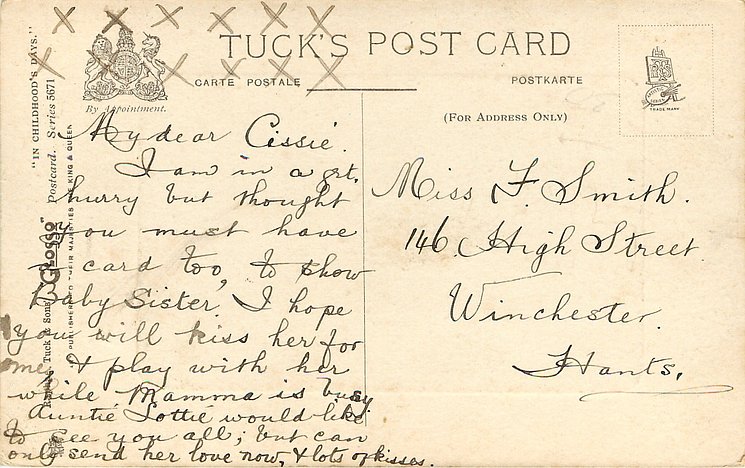 TUCK'S POST CARD
CARTE POSTALE
POSTKARTE
(FOR ADDRESS ONLY)
By Appointment.
TRADE MARK
"IN CHILDHOOD'S DAYS."
Postcard. Series 5671
"GLOSSO"
Raphael Tuck & Sons'
PUBLISHERS TO THEIR MAJESTIES THE KING & QUEEN
X X X X X X
X X X X X X
My dear Cissie.
I am in a grt.
hurry but thought
you must have
a card too, to show
Baby Sister, I hope
you will kiss her for
me, & play with her
while Mamma is busy.
Auntie Lottie would like
to see you all; but can
only send her love now, & lots of kisses.
Miss F. Smith.
146. High Street.
Winchester.
Hants.